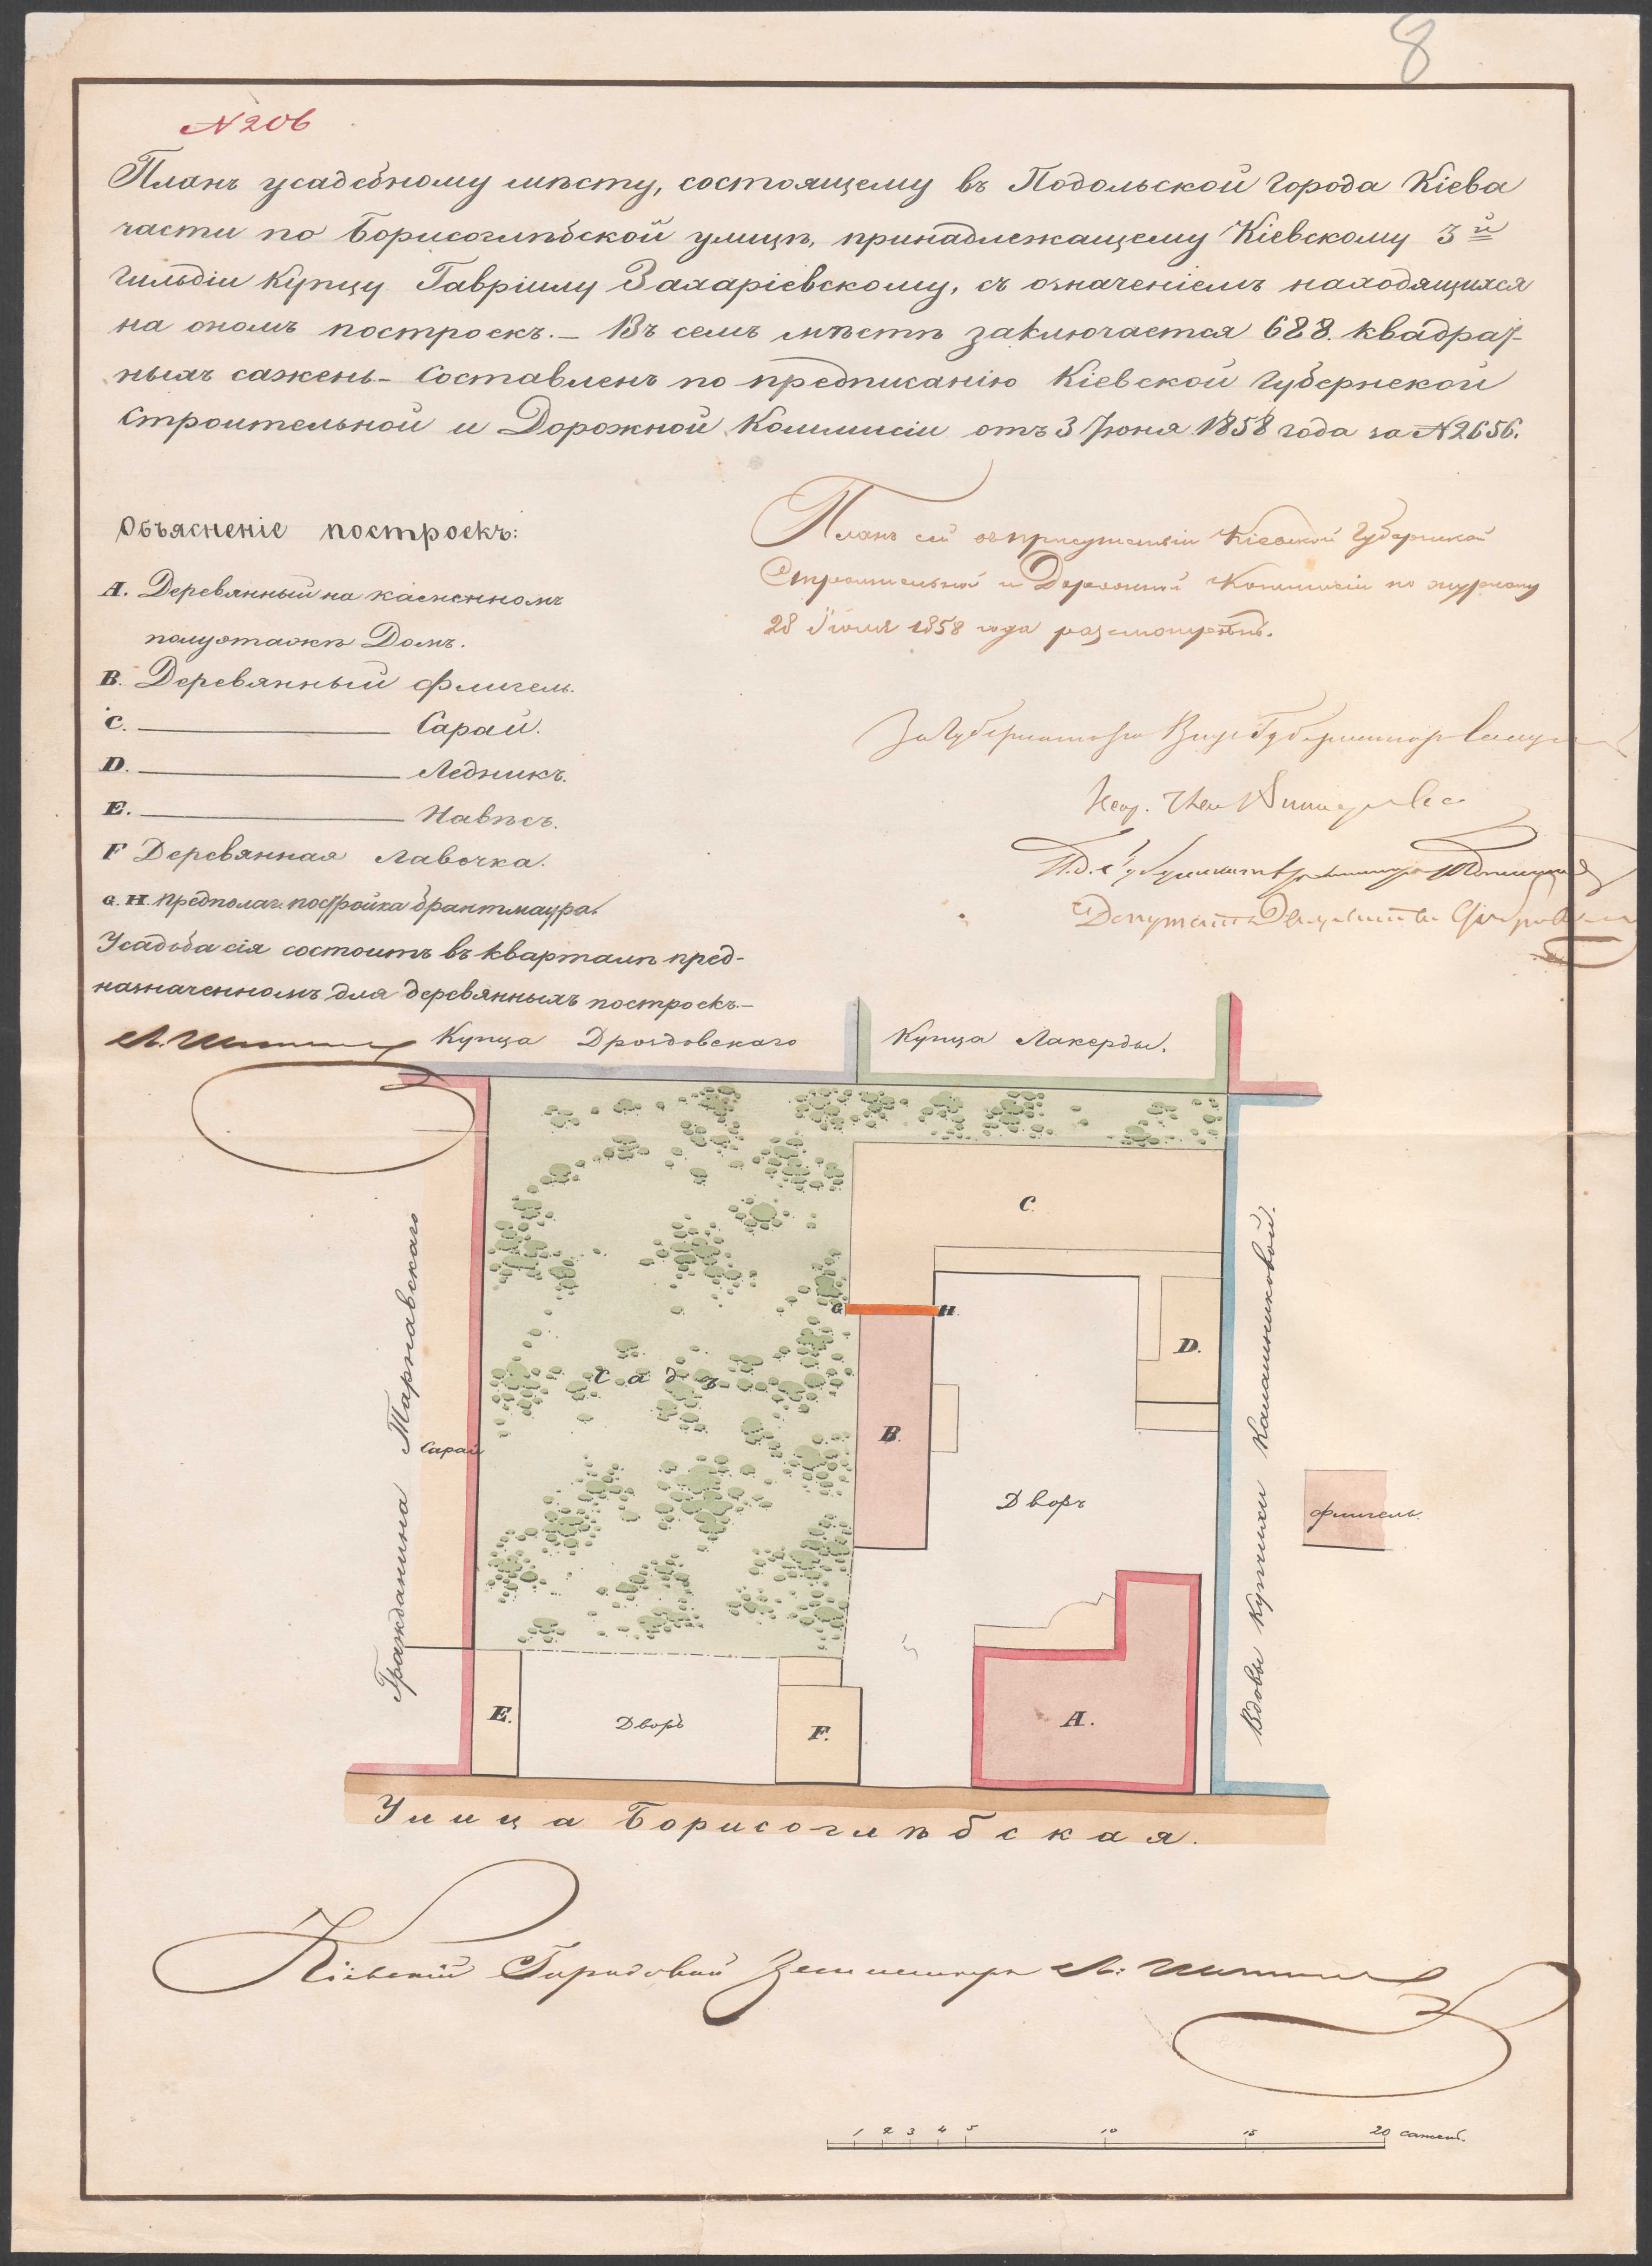 8
№ 206
Планъ усадебному мѣсту, состоящему въ Подольской города Кіева
части по Борисоглѣбской улицѣ, принадлежащему Кіевскому 3й
гильдіи купцу Гавріилу Захаріевскому, съ означеніемъ находящихся
на ономъ построекъ.— Въ семъ мѣстѣ заключается 688. квадрат-
ныхъ сажень.— Составленъ по предписанію Кіевской Губернской
Строительной и Дорожной Коммисіи отъ 3 Іюня 1858 года за №2656.
Объясненіе построекъ:
A. Деревянный на каменномъ
полуэтажѣ Домъ.
B. Деревянный флигель.
C. ——— Сарай.
D. ——— Ледникъ.
E. ——— Навѣсъ.
F Деревянная лавочка.
G.H. предполаг. постройка брантмаура.
Усадьба сія состоитъ въ кварталѣ пред-
назначенномъ для деревянныхъ построекъ.—
Планъ сей въ присутствіи Кіевской Губернской
Строительной и Дорожной Коммисіи по журналу
28 Іюля 1858 года разсмотренъ.
За Губернатора Вице Губернаторъ
Купца Дроздовскаго
Купца Лакерды.
Гражданина Тарнавскаго
Сарай
Садъ
C.
G.
H.
D.
B.
Дворъ
Вдовы купчихи Камашниковой.
флигель.
E.
Дворъ
F.
A.
Улица Борисоглѣбская.
Кіевскій Городовой Землемѣръ
1 2 3 4 5 10 15 20 сажень.